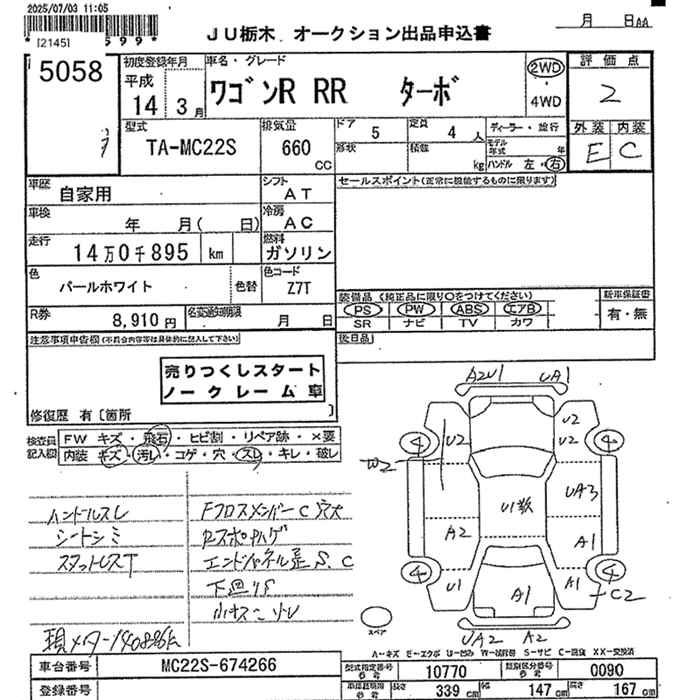 2025/07/03 11:05
[2145]
月 日AA
JU栃木 オークション出品申込書
5058
初度登録年月
平成
14 3月
車名・グレード
ワゴンR RR ターボ
2WD
・
4WD
評価点
2
外装 内装
E C
型式
TA-MC22S
排気量
660
CC
ドア 5
定員 4人
ディーラー・並行
形状
積載 kg
モデル年式 年
ハンドル 左・右
車歴
自家用
シフト
AT
セールスポイント(正常に機能するものに限ります)
車検
年 月( 日)
冷房
AC
走行
14万0千895 km
燃料
ガソリン
色
パールホワイト
色替
色コード
Z7T
R券
8,910円
名変通知期限
月 日
装備品(純正品に限り○をつけてください)
PS PW ABS エアB
SR ナビ TV カワ
新車保証書
有・無
後日品
注意事項申告欄(不具合内容等は具体的に記入して下さい)
売りつくしスタート
ノークレーム車
修復歴 有〔箇所 〕
検査員記入欄
FW キズ・飛石・ヒビ割・リペア跡・×要
内装 キズ・汚レ・コゲ・穴・スレ・キレ・破レ
ハンドルスレ
シートシミ
スタットレスT
FクロスメンバーC穴大
エンドパネル是S、C
下廻りS
現メーター140886k
A2U1 UA1
U2
U2
U2
W2
4
4
U1数
UA3
A2
A1
4
4
U1
A1
A1
C2
UA2 A2
スペア
A-キズ E-エクボ U-凹み W-補修跡 S-サビ C-腐食 XX-交換済
車台番号
MC22S-674266
型式指定番号
10770
類別区分番号
0090
登録番号
長さ 339 cm
幅 147 cm
高さ 167 cm